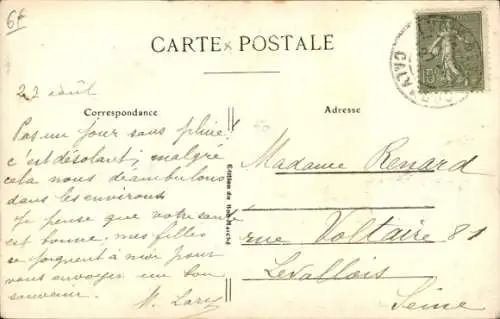 6f
CARTE POSTALE
15
CALVADOS
22 août
Correspondance
Adresse
Pas un jour sans pluie
c'est désolant; malgré
cela nous déambulons
dans les environs
Je pense que votre santé
est bonne. mes filles
se joignent à moi pour
vous envoyer un bon
souvenir.
Edition du Bon Marché
Madame Renard
rue Voltaire 81
Levallois
Seine